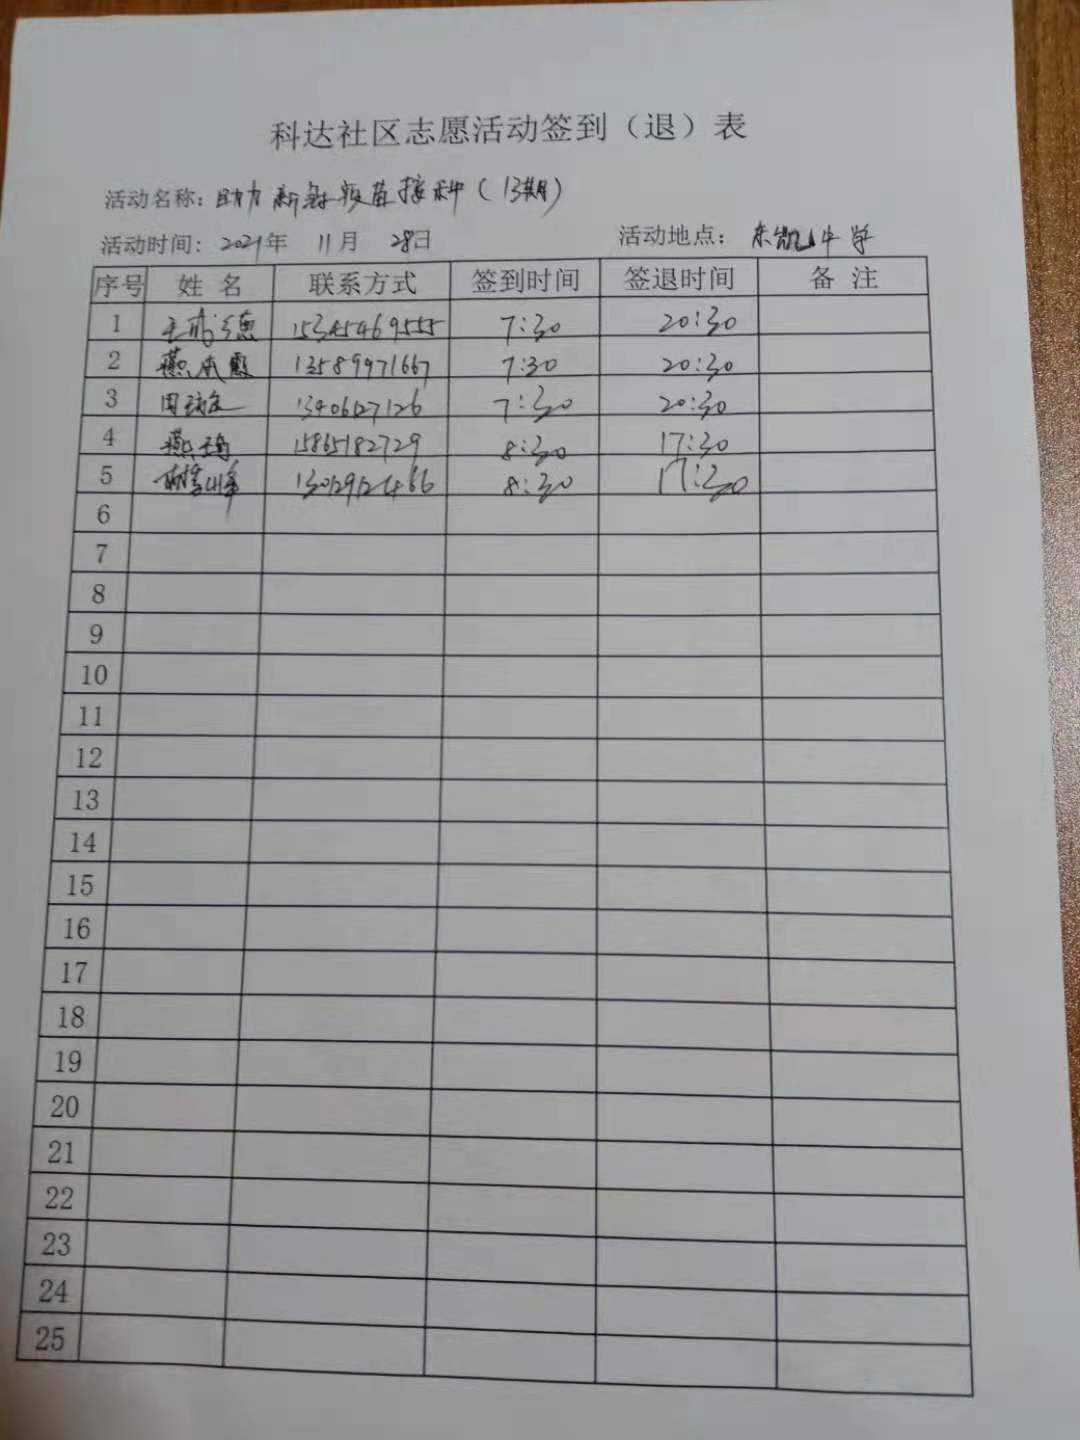 科达社区志愿活动签到（退）表
活动名称：助力新冠疫苗接种（13期）
活动时间：2021年 11月 28日 活动地点：东凯中学
序号 姓名 联系方式 签到时间 签退时间 备注
1 15345469555 7:30 20:30
2 13589971667 7:30 20:30
3 7:30 20:30
4 燕 15865182729 8:30 17:30
5 8:30 17:30
6
7
8
9
10
11
12
13
14
15
16
17
18
19
20
21
22
23
24
25